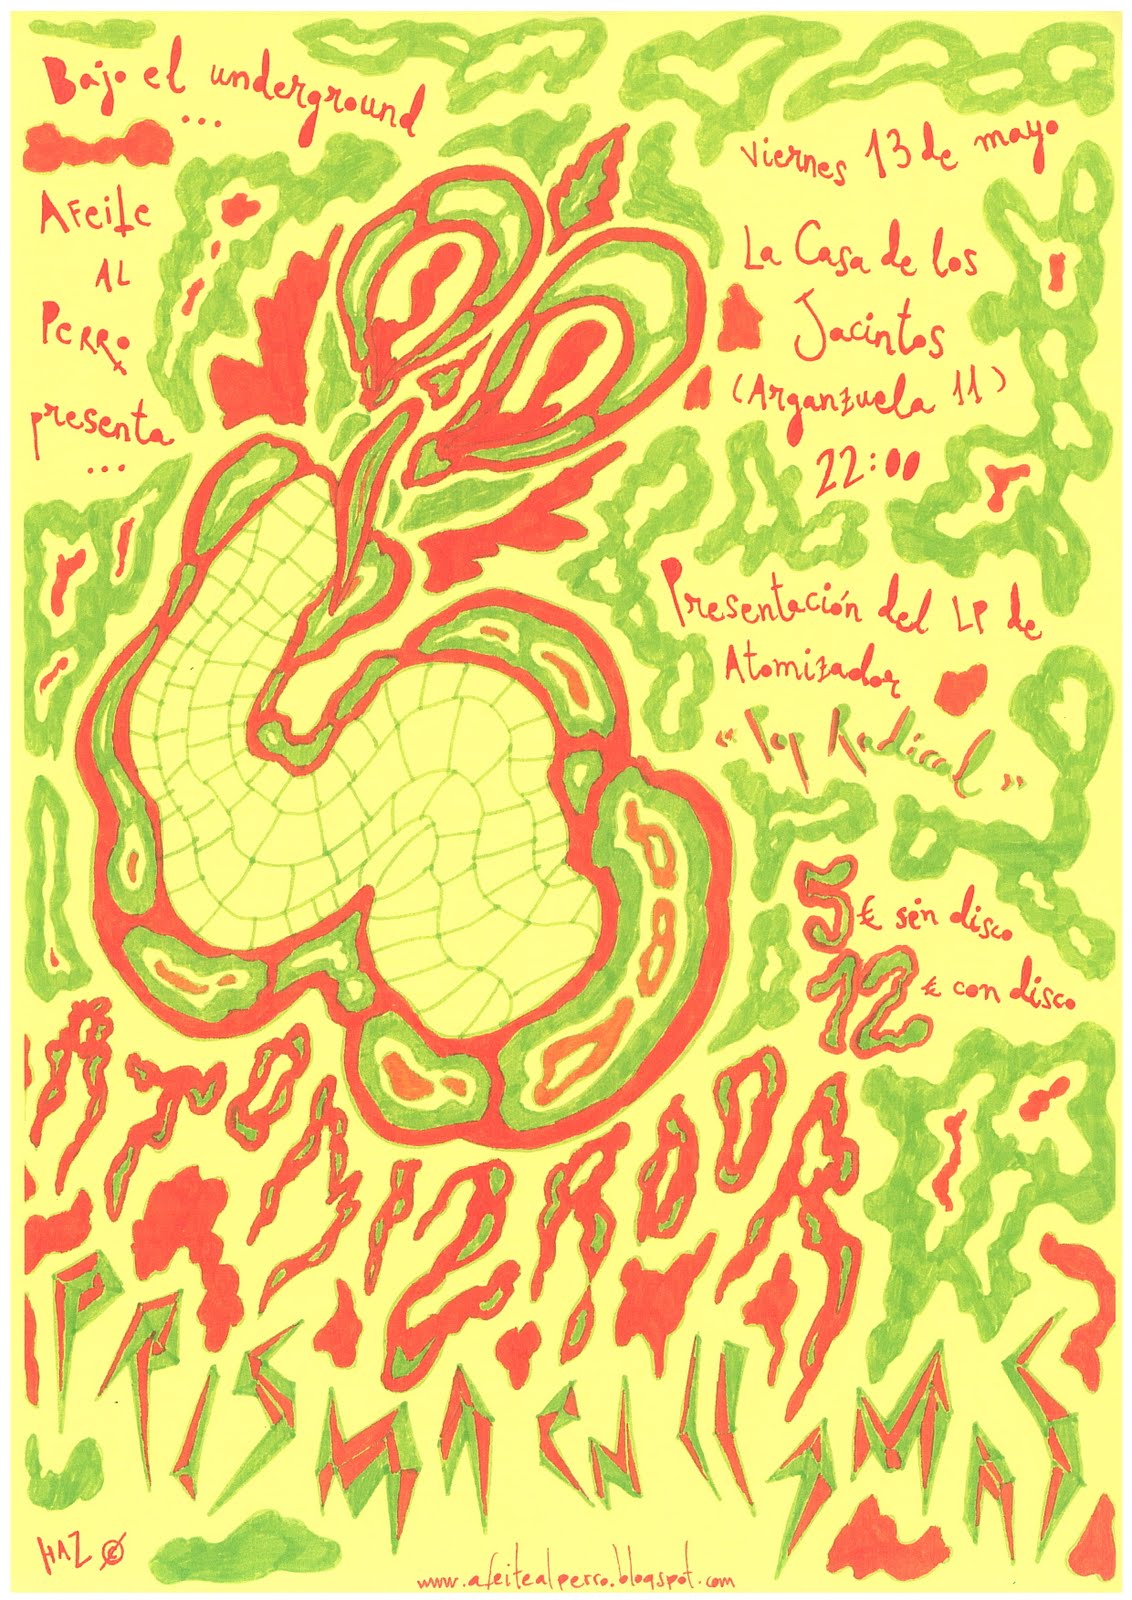 Bajo el underground
...
AFeite
AL
PERRo
presenta
...
viernes 13 de mayo
La Casa de los
Jacintos
(Arganzuela 11)
22:00
Presentación del LP de
Atomizador
"Pop Radical"
5€ sin disco
12€ con disco
ATOMIZADOR
PRISMA EN LLAMAS
HAZ
www.afeitealperro.blogspot.com